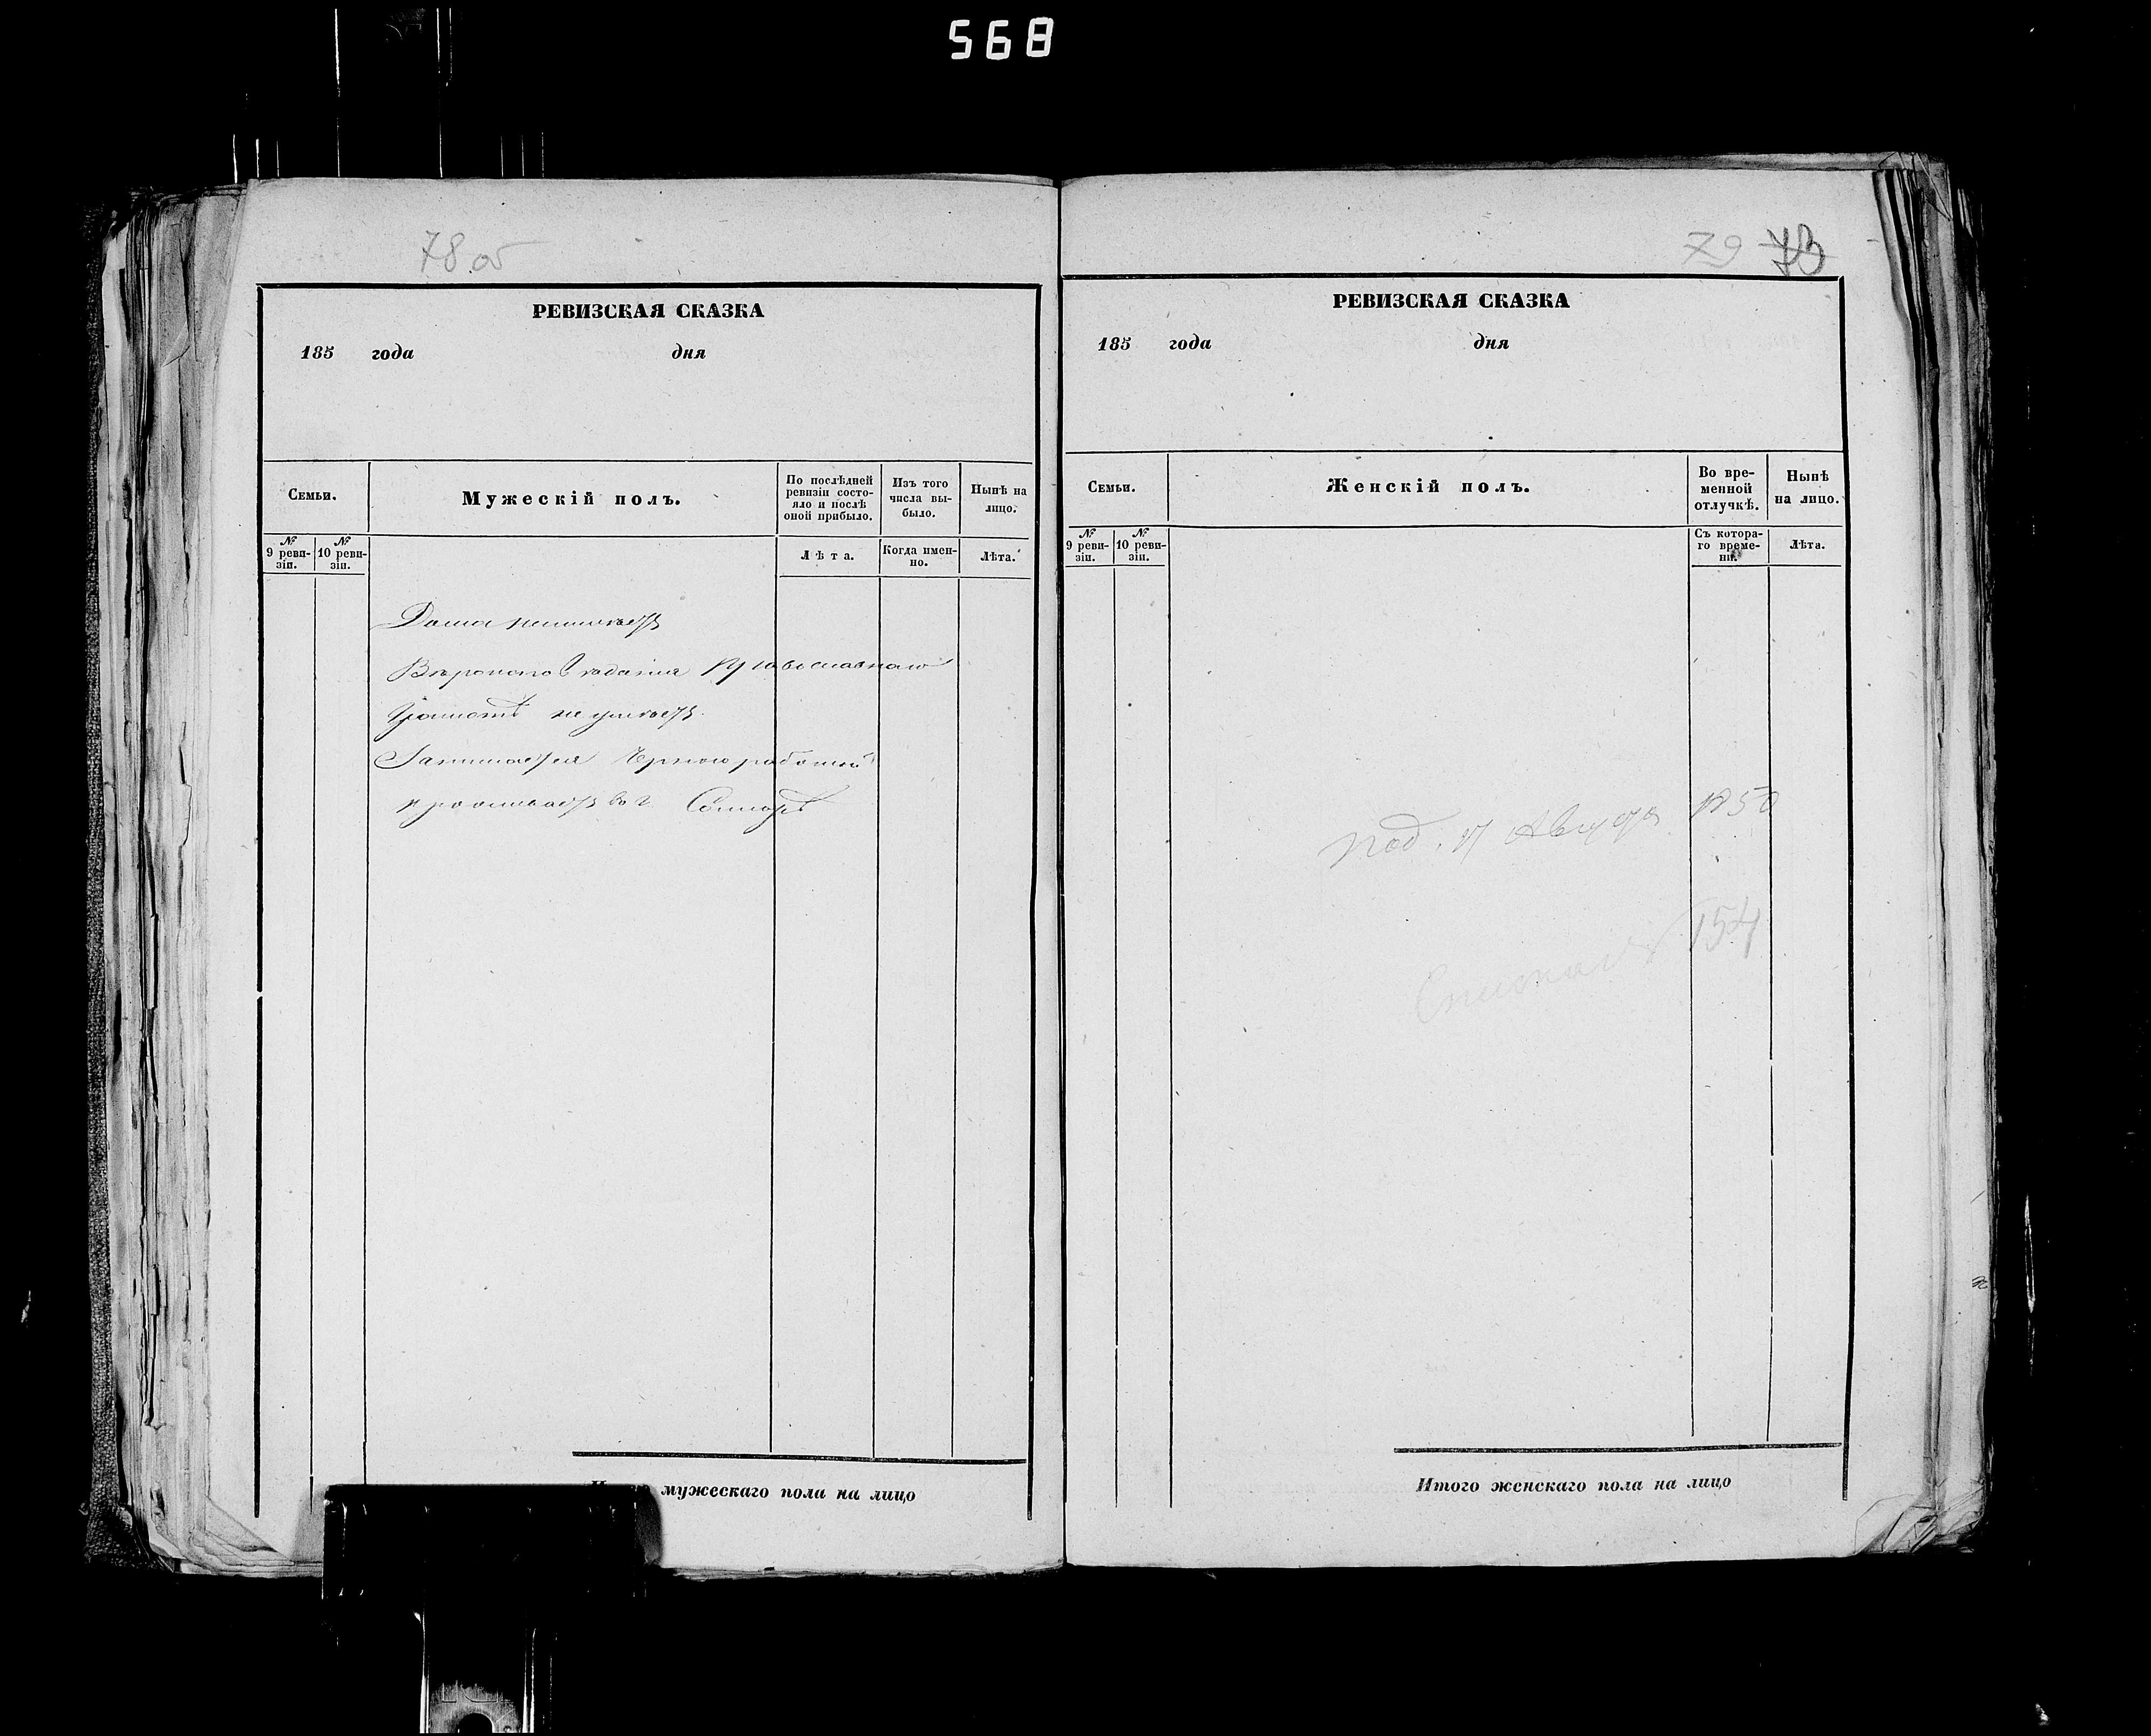 568
78 об
РЕВИЗСКАЯ СКАЗКА
185 года дня
Семьи.
Мужескій полъ.
По послѣдней ревизіи состояло и послѣ оной прибыло.
Изъ того числа выбыло.
Нынѣ на лицо.
№ 9 ревизіи.
№ 10 ревизіи.
Лѣта.
Когда именно.
Лѣта.
Дома неимѣетъ
Вѣроисповѣданія Православнаго
Грамотѣ не умѣетъ
Занимается Черною работой
проживаетъ въ г. Самарѣ
мужескаго пола на лицо
79 73
РЕВИЗСКАЯ СКАЗКА
185 года дня
Семьи.
Женскій полъ.
Во временной отлучкѣ.
Нынѣ на лицо.
№ 9 ревизіи.
№ 10 ревизіи.
Съ котораго времени.
Лѣта.
под. 17 Августа 1850
154
Итого женскаго пола на лицо